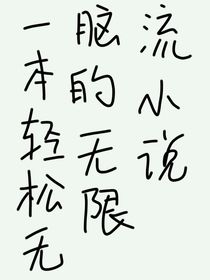 一本轻松无
脑的无限
流小说